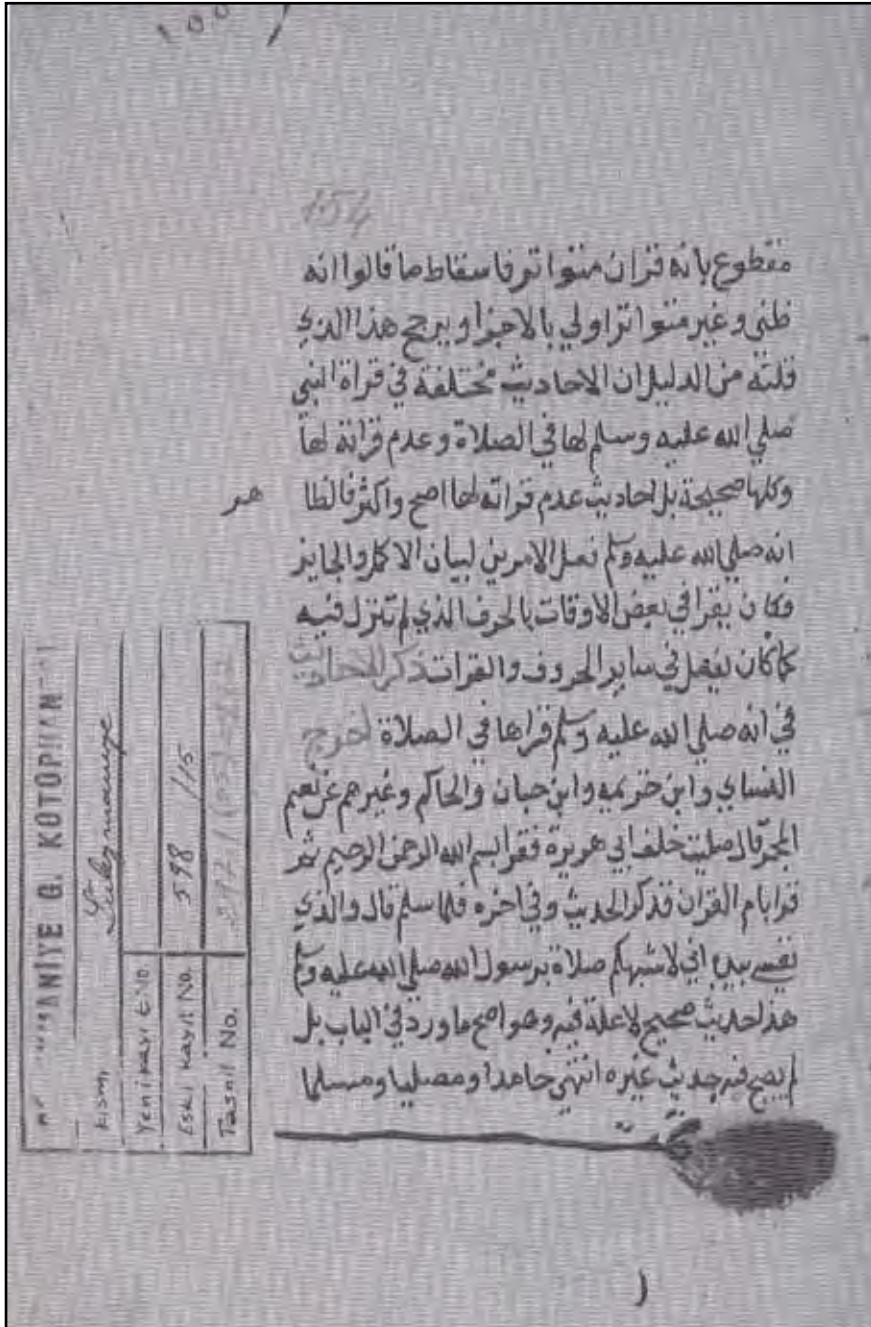 154
مقطوع بانه قران متواتر فاسقاط ما قالوا انه
ظني وغير متواتر اولي بالاحزا ويرجح هذا الذي
قلته من الدليل ان الاحاديث مختلفة في قراة النبي
صلي الله عليه وسلم لها في الصلاة وعدم قراته لها
وكلها صحيحة بل احاديث عدم قراته لها اصح واكثر فالظا
هر
انه صلي الله عليه وسلم فعل الامرين لبيان الاكمل والجايز
فكان يقرا في بعض الاوقات بالحرف الذي لم تنزل فيه
كما كان يفعل في ساير الحروف والقرات ذكر الاحاديث
في انه صلي الله عليه وسلم قراها في الصلاة اخرج
النساي وابن خزيمه وابن حبان والحاكم وغيرهم عن نعيم
المجمر قال صليت خلف ابي هريرة فقرا بسم الله الرحمن الرحيم ثم
قرا بام القران فذكر الحديث وفي اخره فلما سلم قال والذي
نفسي بيده اني لاشبهكم صلاة برسول الله صلي الله عليه وسلم
هذا حديث صحيح لا علة فيه وهو اصح ما ورد في الباب بل
لم يصح فيه حديث غيره انتهي حامدا ومصليا ومسلما
ANİYE G. KÜTÜPHAN
Kısmı Süleymaniye
Yeni Kayıt No.
Eski Kayıt No. 598 /15
Tasnif No.